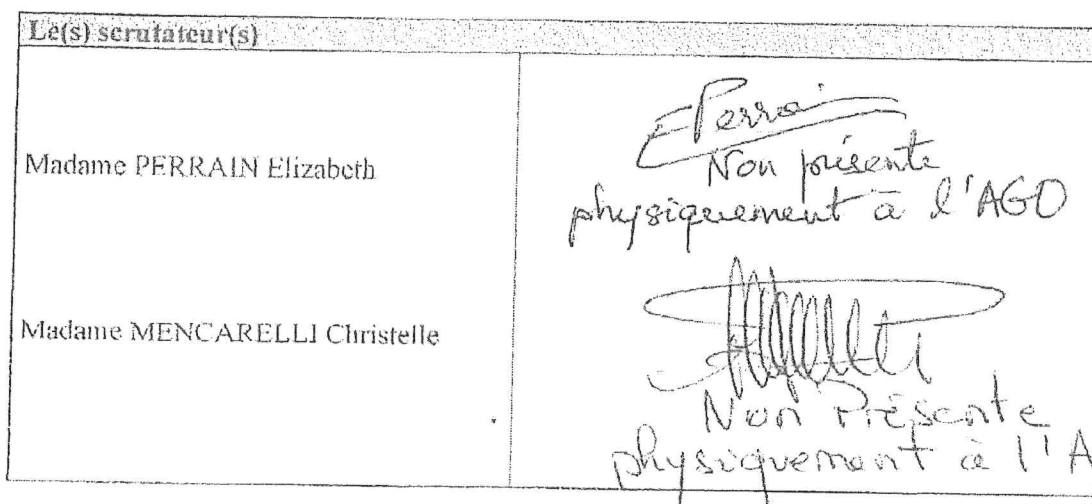 Le(s) scrutateur(s)
Madame PERRAIN Elizabeth
EPerrain
Non présente
physiquement à l'AGO
Madame MENCARELLI Christelle
Non Présente
physiquement à l'A